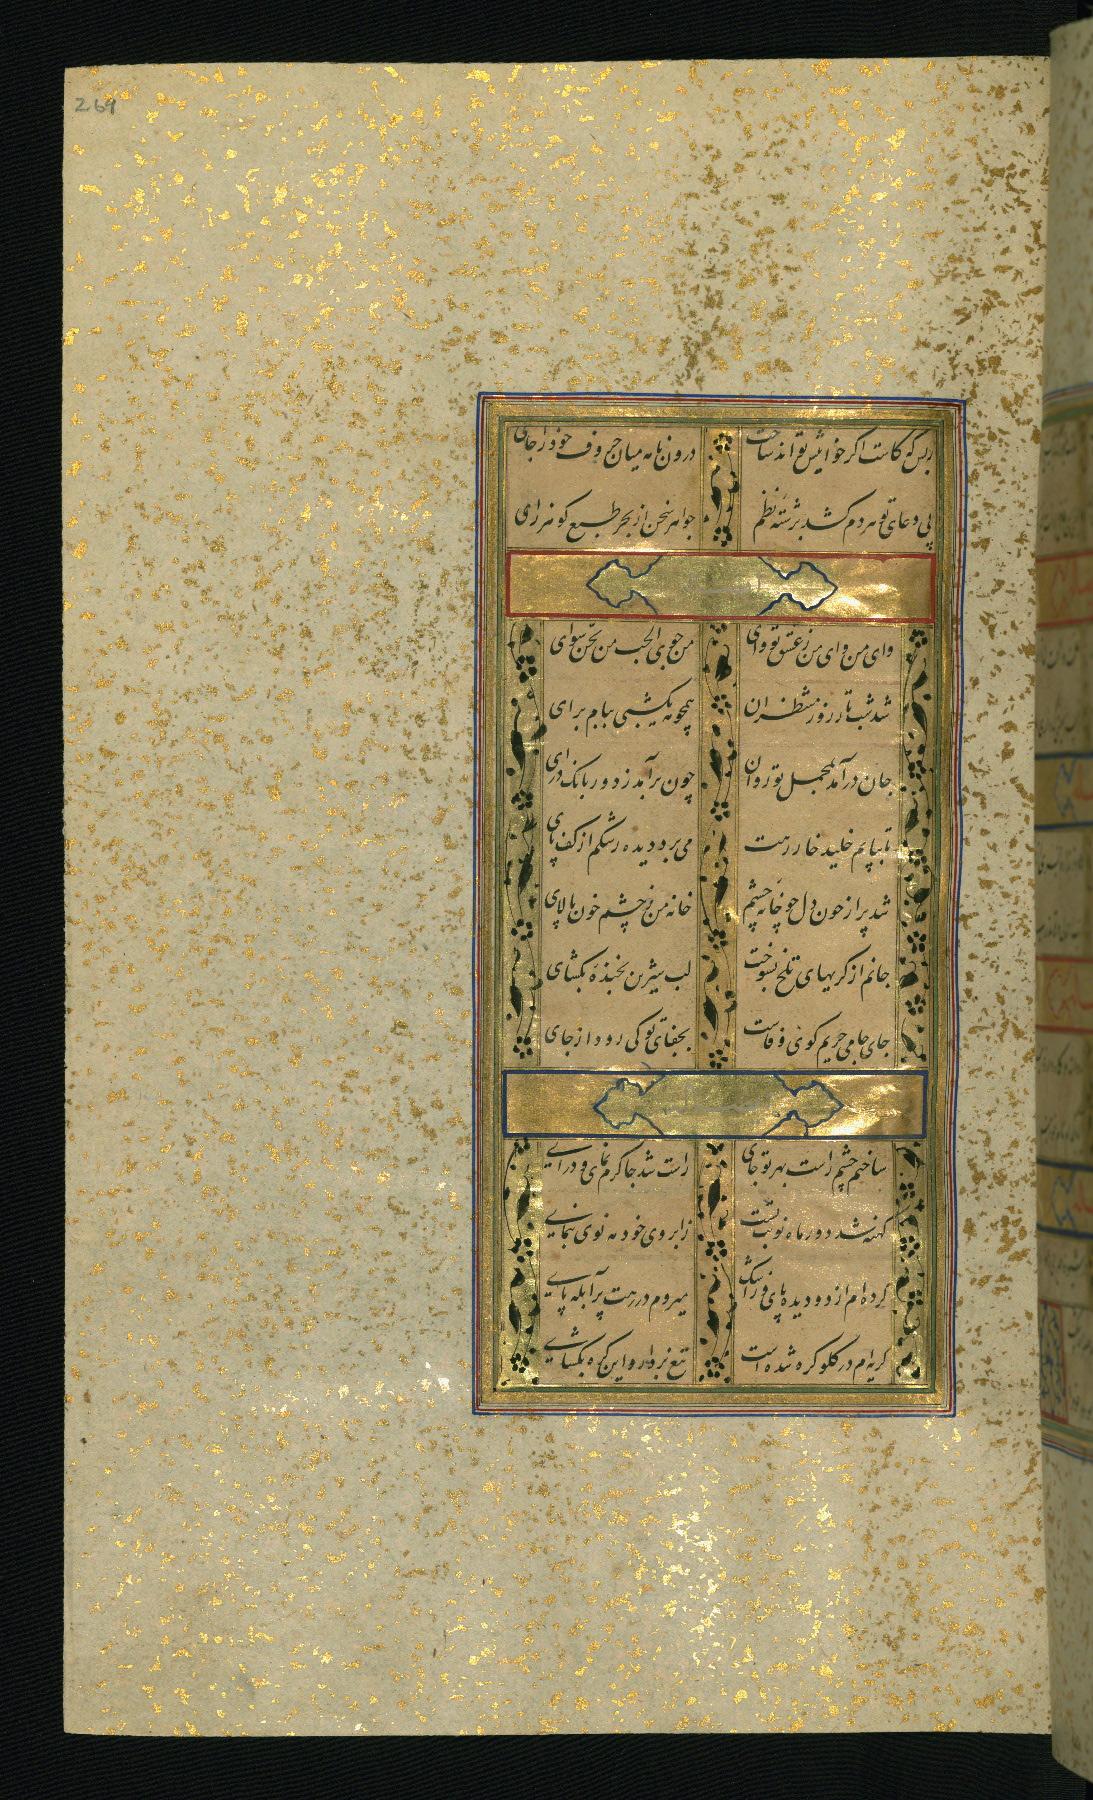 269
ز بس که کاست اگر خوانیش تواند ساخت
درون نامه میان حروف خود را جای
پی دعای تو هر دم کشد برشته نظم
جواهر سخن از بحر طبع گوهرزای
وای من وای من ز عشق تو وای
من جوی الحب من سوای
شد شب تار روز منتظران
همچو مه یکشبی ببام برای
جان درآمد بمحمل تو روان
چون برآمد ز دور بانک درای
تا بپایم خلید خار رهت
می برد دیده رشکم از کف پای
شد پر از خون دل چو خانه چشم
خانه من ز چشم خون پالای
جانم از کریهای تلخ بسوخت
لب شیرین بخنده بکشای
جای جامی حریم کوی وفاست
بجفای تو کی رود از جای
ساختم چشم راست بهر تو جای
راست شد جا کرم نمای و درای
کهنه شد دور ماه نوبت تست
ز ابروی خود مه نوی بنمای
کرده‌ام از دو دیده پای
میروم در رهت پر آبله پای
کریه‌ام در کلو کره شده است
تیغ بردار و این کره بکشای